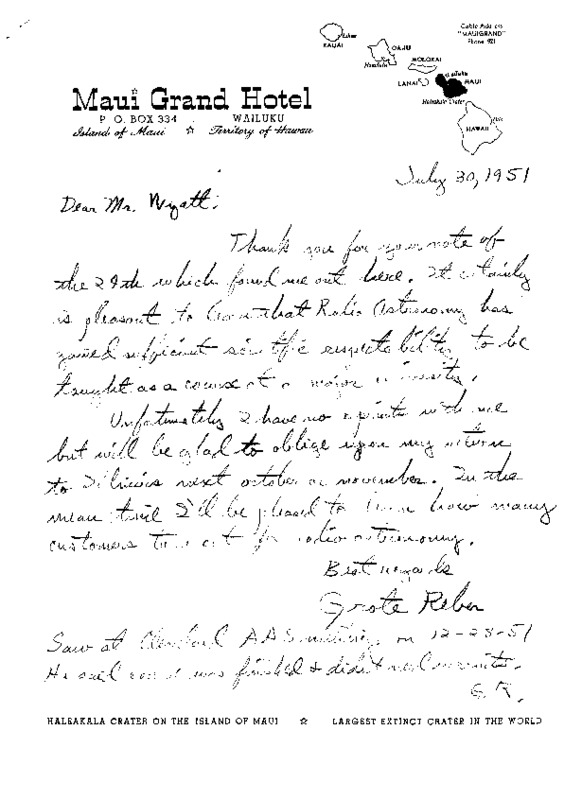 KAUAI
OAHU
Honolulu
MOLOKAI
LANAI
MAUI
Haleakala Crater
HAWAII
Hilo
Cable Address
"MAUIGRAND"
Phone 921
Maui Grand Hotel
P. O. BOX 334 WAILUKU
Island of Maui ☆ Territory of Hawaii
July 30, 1951
Dear Mr. Wyatt:
Thank you for your note of
the 29th which found me out here. It certainly
is pleasant to learn that Radio Astronomy has
gained sufficient scientific respectability to be
taught as a course at a major university.
Unfortunately I have no reprints with me
but will be glad to oblige upon my return
to Illinois next october or november. In the
mean time I'll be pleased to learn how many
customers turn out for radio astronomy.
Best regards
Grote Reber
Saw at Cleveland AAS meeting on 12-28-51
He said course was finished & didn't need reprints.
G.R.
HALEAKALA CRATER ON THE ISLAND OF MAUI ☆ LARGEST EXTINCT CRATER IN THE WORLD